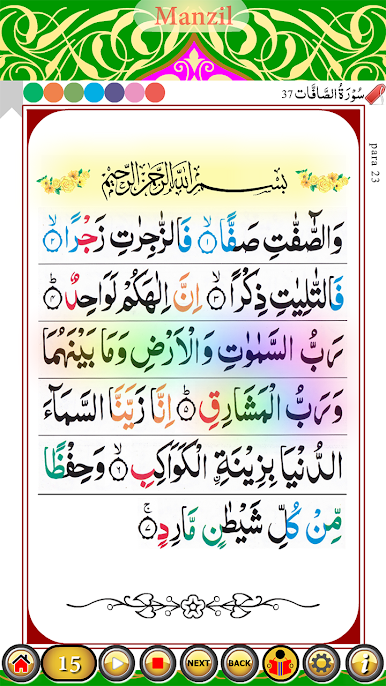 Manzil
سُوْرَةُ الصَّافَّات 37
para 23
بِسْمِ اللّٰهِ الرَّحْمٰنِ الرَّحِيْمِ
وَالصّٰٓفّٰتِ صَفًّا ۙ‏﴿۱﴾ فَالزّٰجِرٰتِ زَجْرًا ۙ‏﴿۲﴾
فَالتّٰلِيٰتِ ذِكْرًا ۙ‏﴿۳﴾ اِنَّ اِلٰهَكُمْ لَوَاحِدٌ ؕ‏﴿۴﴾
رَبُّ السَّمٰوٰتِ وَالْاَرْضِ وَمَا بَيْنَهُمَا
وَرَبُّ الْمَشَارِقِ ؕ‏﴿۵﴾ اِنَّا زَيَّنَّا السَّمَآءَ
الدُّنْيَا بِزِيْنَةِ ۨ الْكَوَاكِبِ ۙ‏﴿۶﴾ وَحِفْظًا
مِّنْ كُلِّ شَيْطٰنٍ مَّارِدٍ ۚ‏﴿۷﴾
15
NEXT
BACK
i